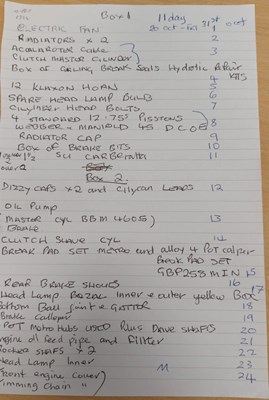 Box 1 11 day
ELECTRIC FAN 20 oct - Fri 31st oct 1
RADIATORS x 2 2
ACCELARATOR CABLE } 3
CLUTCH MASTER CYLINDER
BOX OF BREAK Seals Hydetic Repair
4 KITS
12 KLAXON HORN 5
SPARE HEAD LAMP BULB 6
CILYINDER HEAD BOLTS 7
4 STANDARD 12.75" PISSTONS } 8
WEBBER + MANIFOLD 45 DCOE
RADIATOR CAP 9
BOX OF BRAKE BITS 10
SU CARBERATTA 11
Box 2.
DIZZY CAPS x2 and Cilycan Leads 12
OIL PUMP
MASTER CYL BBM 4605 } 13
CLUTCH SLAVE CYL 14
BREAK PAD SET METRO and alloy 4 Pot caliper
Break PAD SET
GBP 258 MIN 15
REAR BRAKE SHOES 16
Head Lamp Inner + outer yellow Box 17
Bottom Ball Joint + GAITTOR 18
Brake Calleper 19
POT Metro Hubs USED Plus Dave SHAFTS 20
engine oil feed pipe and Fillter 21
Rocker SHAFTS x 2 22
Head Lamp Inner 23
Front engine Cover } 24
Timming Chain "